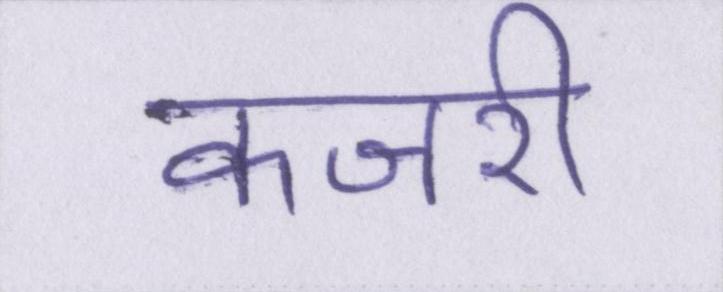 कजरी